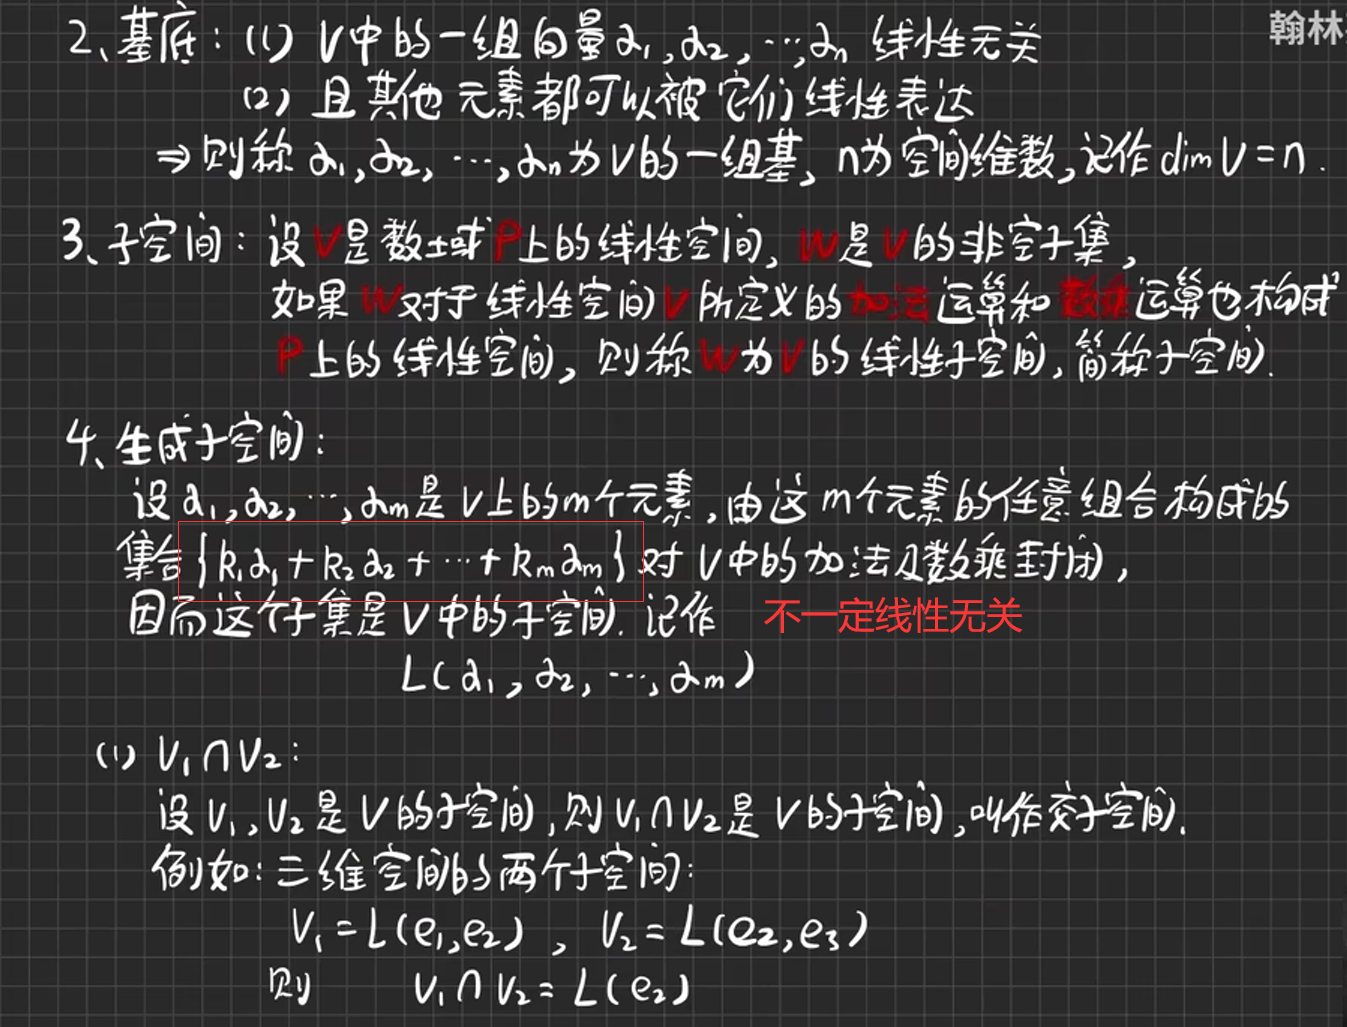 翰林
2、基底：(1) V中的一组向量α₁,α₂,…,αₙ 线性无关
(2) 且其他元素都可以被它们线性表达
⇒ 则称 α₁,α₂,…,αₙ为V的一组基, n为空间维数,记作dim V=n.
3、子空间：设V是数域P上的线性空间, W是V的非空子集,
如果W对于线性空间V所定义的加法运算和数乘运算也构成
P上的线性空间, 则称W为V的线性子空间,简称子空间.
4、生成子空间：
设α₁,α₂,…,αₘ是V上的m个元素,由这m个元素的任意组合构成的
集合{k₁α₁+k₂α₂+…+kₘαₘ}对V中的加法及数乘封闭,
因而这个子集是V中的子空间.记作 不一定线性无关
L(α₁,α₂,…,αₘ)
(1) V₁∩V₂:
设V₁,V₂是V的子空间,则V₁∩V₂是V的子空间,叫作交子空间.
例如:三维空间的两个子空间:
V₁=L(e₁,e₂) , V₂=L(e₂,e₃)
则 V₁∩V₂=L(e₂)